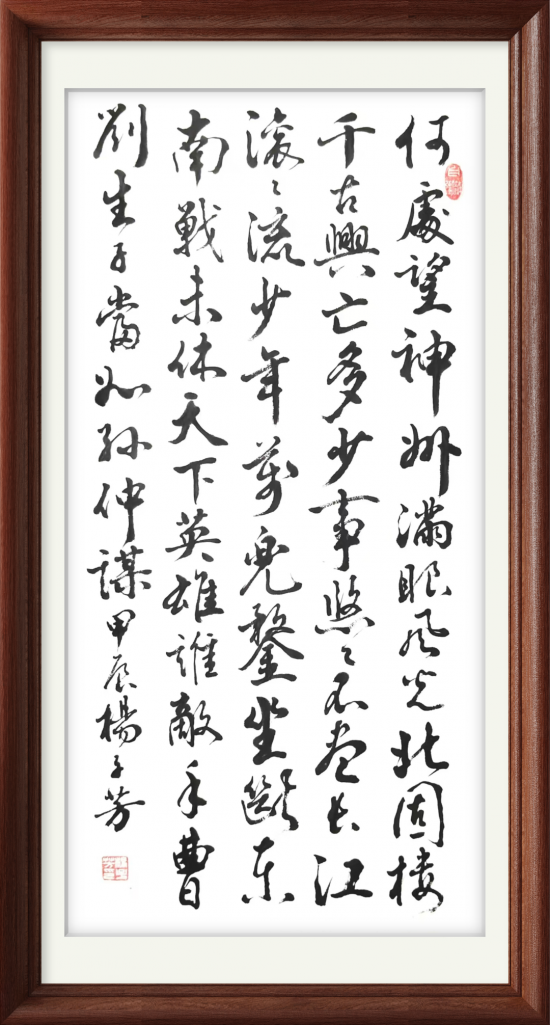 何處望神州滿眼風光北固樓
千古興亡多少事悠〻不盡長江
滚〻流少年萬兜鍪坐斷东
南戰未休天下英雄誰敵手曹
劉生子當如孫仲謀甲辰楊子芳